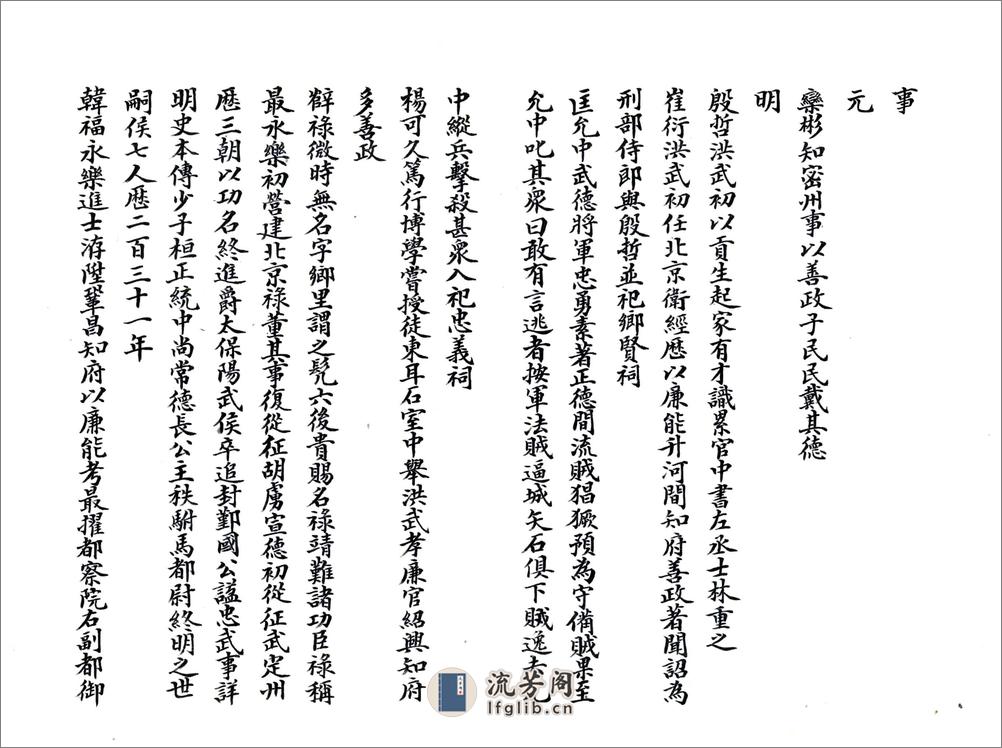 事
元
欒彬知密州事以善政子民民戴其德
明
殷哲洪武初以貢生起家有才識累官中書左丞士林重之
崔衍洪武初任北京衛經歷以廉能升河間知府善政著聞詔為
刑部侍郎與殷哲並祀鄉賢祠
匡允中武德將軍忠勇素著正德間流賊猖獗預為守備賊果至
允中叱其衆曰敢有言逃者按軍法賊逼城矢石俱下賊逸去允
中縱兵擊殺甚衆入祀忠義祠
楊可久篤行博學嘗授徒東耳石室中舉洪武孝廉官紹興知府
多善政
薛祿微時無名字鄉里謂之髠六後貴賜名祿靖難諸功臣祿稱
最永樂初營建北京祿董其事復從征胡虜宣德初從征武定州
歷三朝以功名終進爵太保陽武侯卒追封鄞國公謚忠武事詳
明史本傳少子桓正統中尚常德長公主秩駙馬都尉終明之世
嗣侯七人歷二百三十一年
韓福永樂進士洊陞鞏昌知府以廉能考最擢都察院右副都御
流芳阁
lfglib.cn